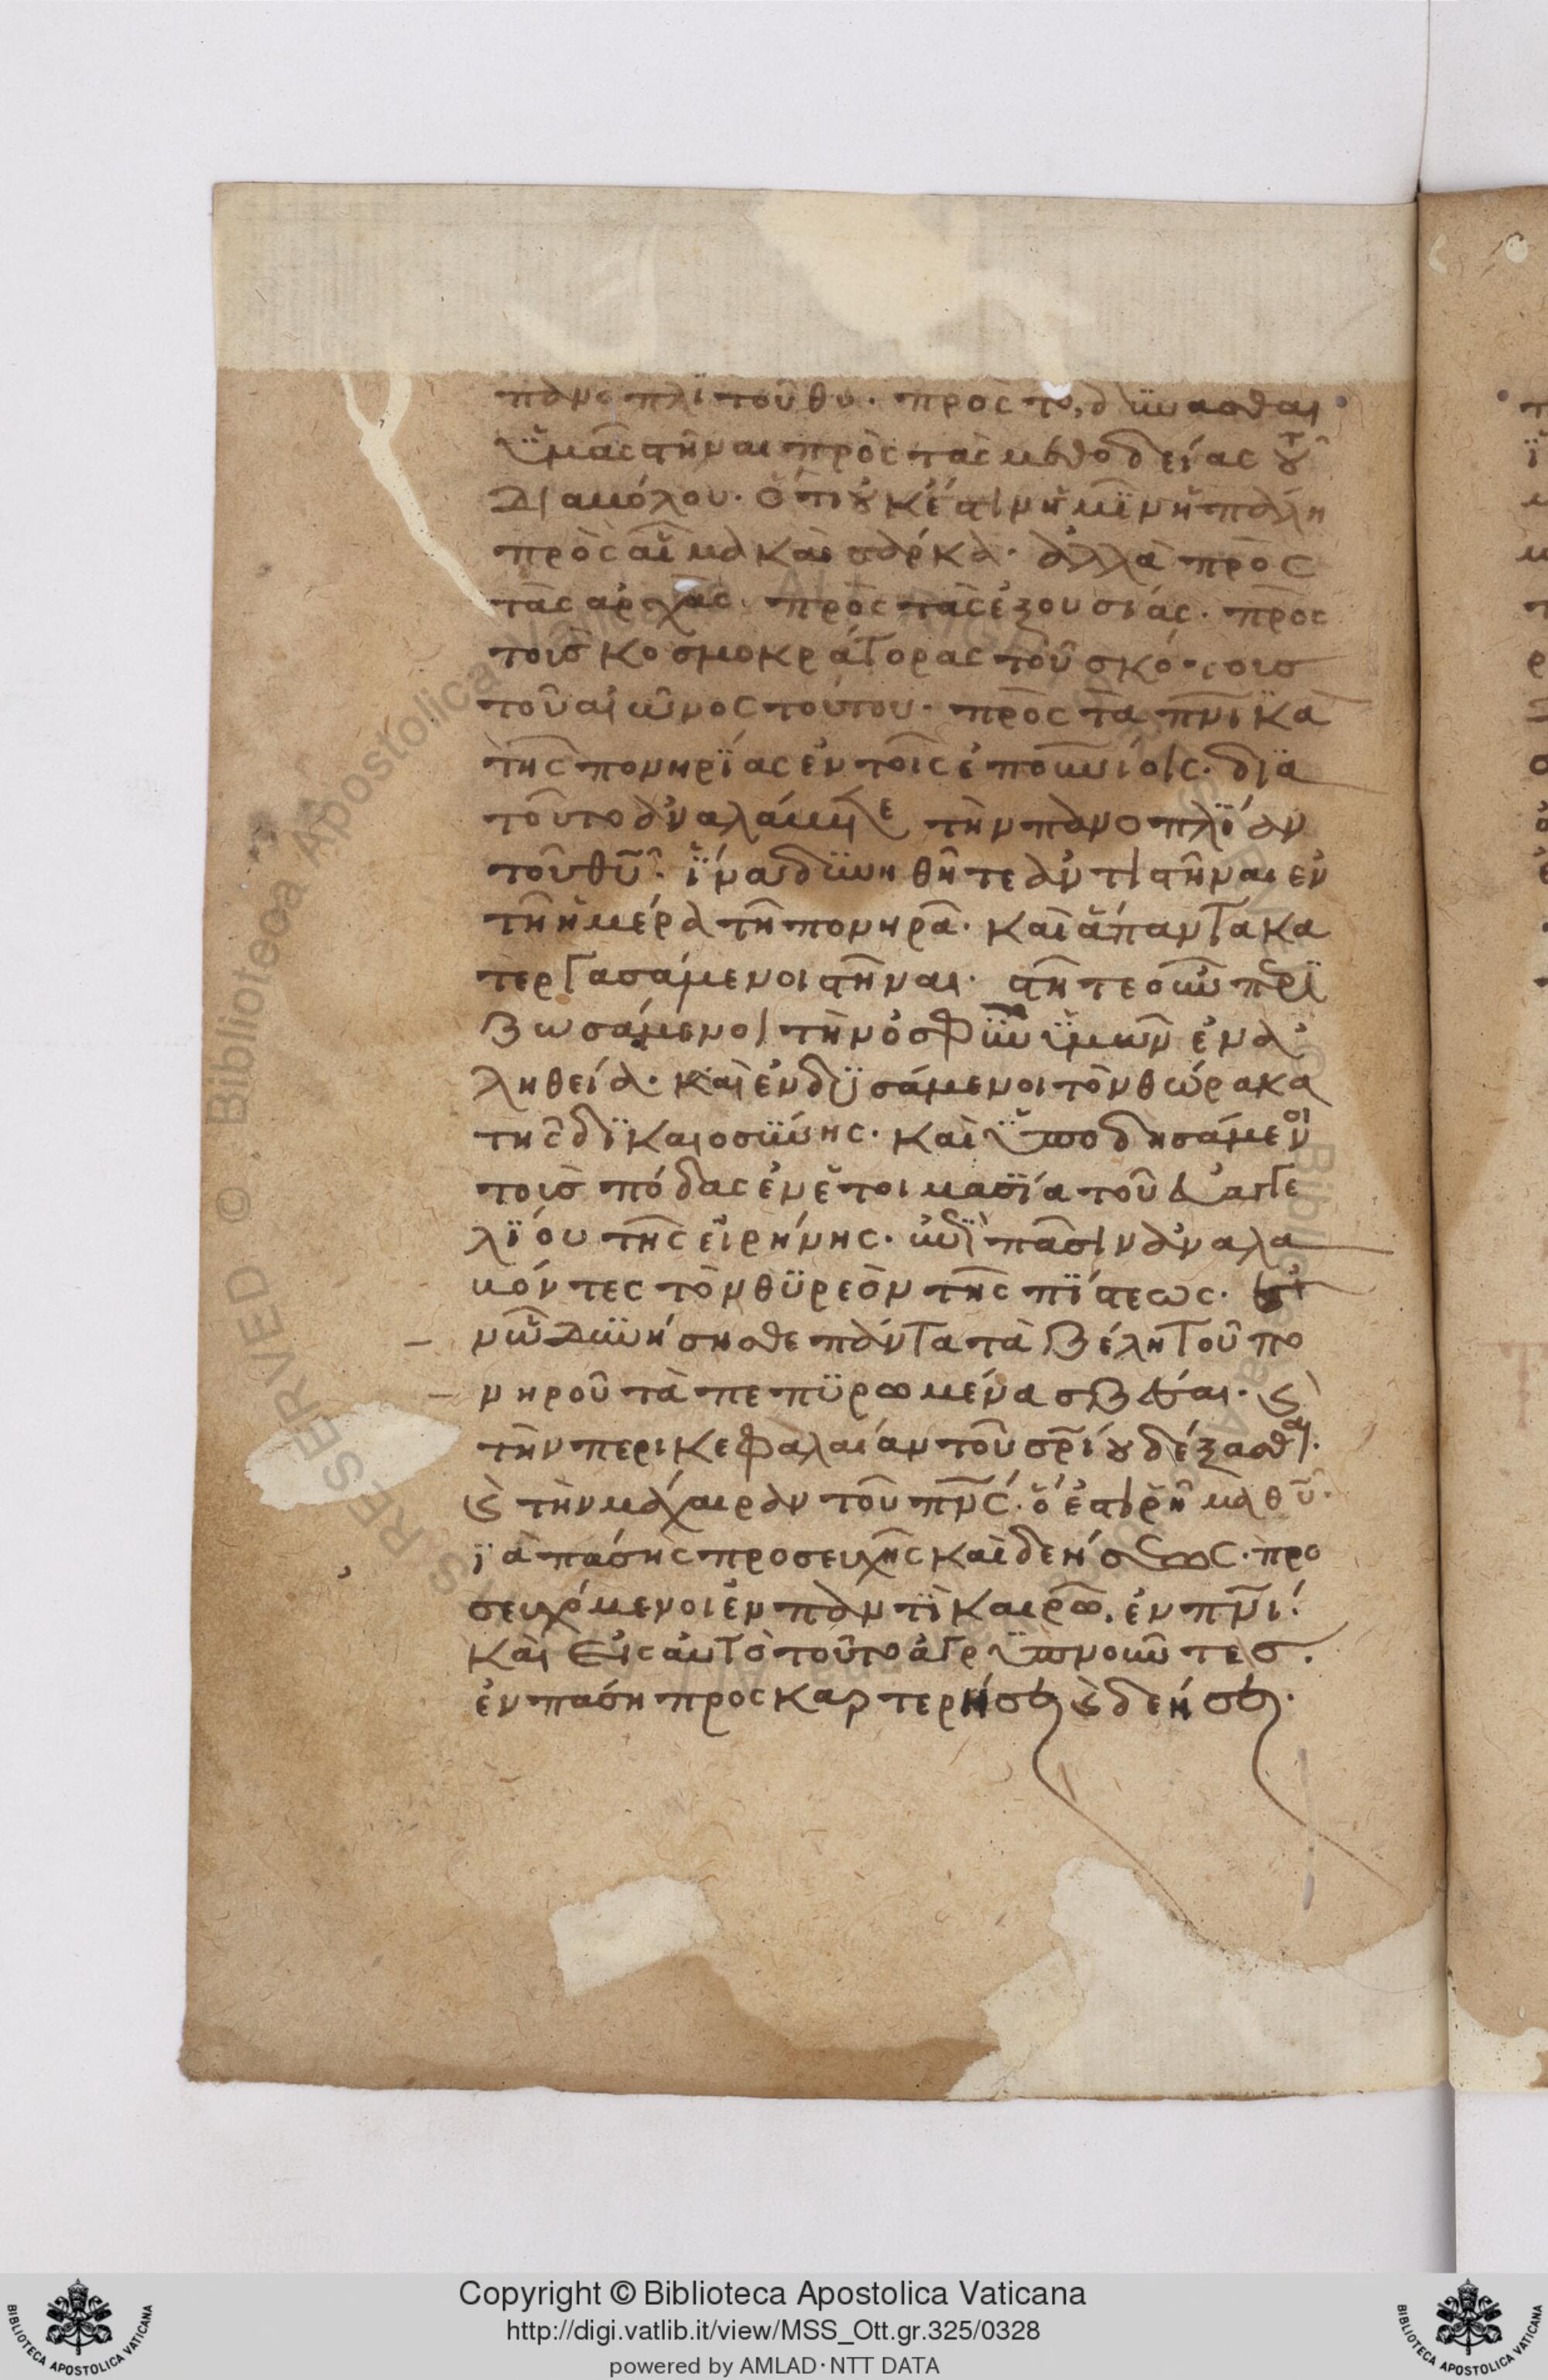 πανοπλϊ τοῦ θυ. πρὸς τὸ δϋνασθαι
ϋμᾶς στῆναι πρὸς τὰς μεθοδείας τοῦ
διαβόλου. ὅτι οὐκ ἔστιν ἡμῖν ἡ πάλη
πρὸς αἷμα καὶ σάρκα. ἀλλὰ πρὸς
τὰς ἀρχὰς. πρὸς τὰς ἐξουσιάς. πρὸς
τοὺς κοσμοκράτορας τοῦ σκότους
τοῦ αἰῶνος τούτου. πρὸς τὰ πνικὰ
τῆς πονηρϊας ἐν τοῖς ἐπουνίοις. διὰ
τοῦτο ἀναλάβετε τὴν πανοπλϊαν
τοῦ θῦ. ἵνα δϋνηθῆτε ἀντιστῆναι ἐν
τῆ ἡμέρα τῆ πονηρᾶ. καὶ ἅπαντα κα
τεργασάμενοι στῆναι. στῆτε οὖν περϊ
ζωσάμενοι τὴν ὀσφὺν ϋμῶν ἐν ἀ
ληθεία. καὶ ἐνδϋσάμενοι τὸν θώρακα
τῆς δϊκαιοσϋνης. καὶ ϋποδησάμενοι
τοὺς πόδας ἐν ἑτοιμασϊα τοῦ εὐαγγε
λϊου τῆς εἰρήνης. ἐπὶ πᾶσιν ἀναλα
βόντες τὸν θϋρεὸν τῆς πϊστεως. ἐν
ᾧ δϋνήσησθε πάντα τὰ βέλη τοῦ πο
νηροῦ τὰ πεπϋρωμένα σβέσαι. καὶ
τὴν περικεφαλαίαν τοῦ σρίου δέξασθαι.
καὶ τὴν μάχαιραν τοῦ πνς. ὅ ἐστι ῥῆμα θῦ.
ϊὰ πάσης προσευχῆς καὶ δεήσεως. προ
σευχόμενοι ἐν παντὶ καιρῶ. ἐν πνι.
καὶ εἰς αὐτὸ τοῦτο ἀγρϋπνοῦντες.
ἐν πάση προσκαρτερήσει καὶ δεήσει.
Copyright © Biblioteca Apostolica Vaticana
http://digi.vatlib.it/view/MSS_Ott.gr.325/0328
powered by AMLAD·NTT DATA